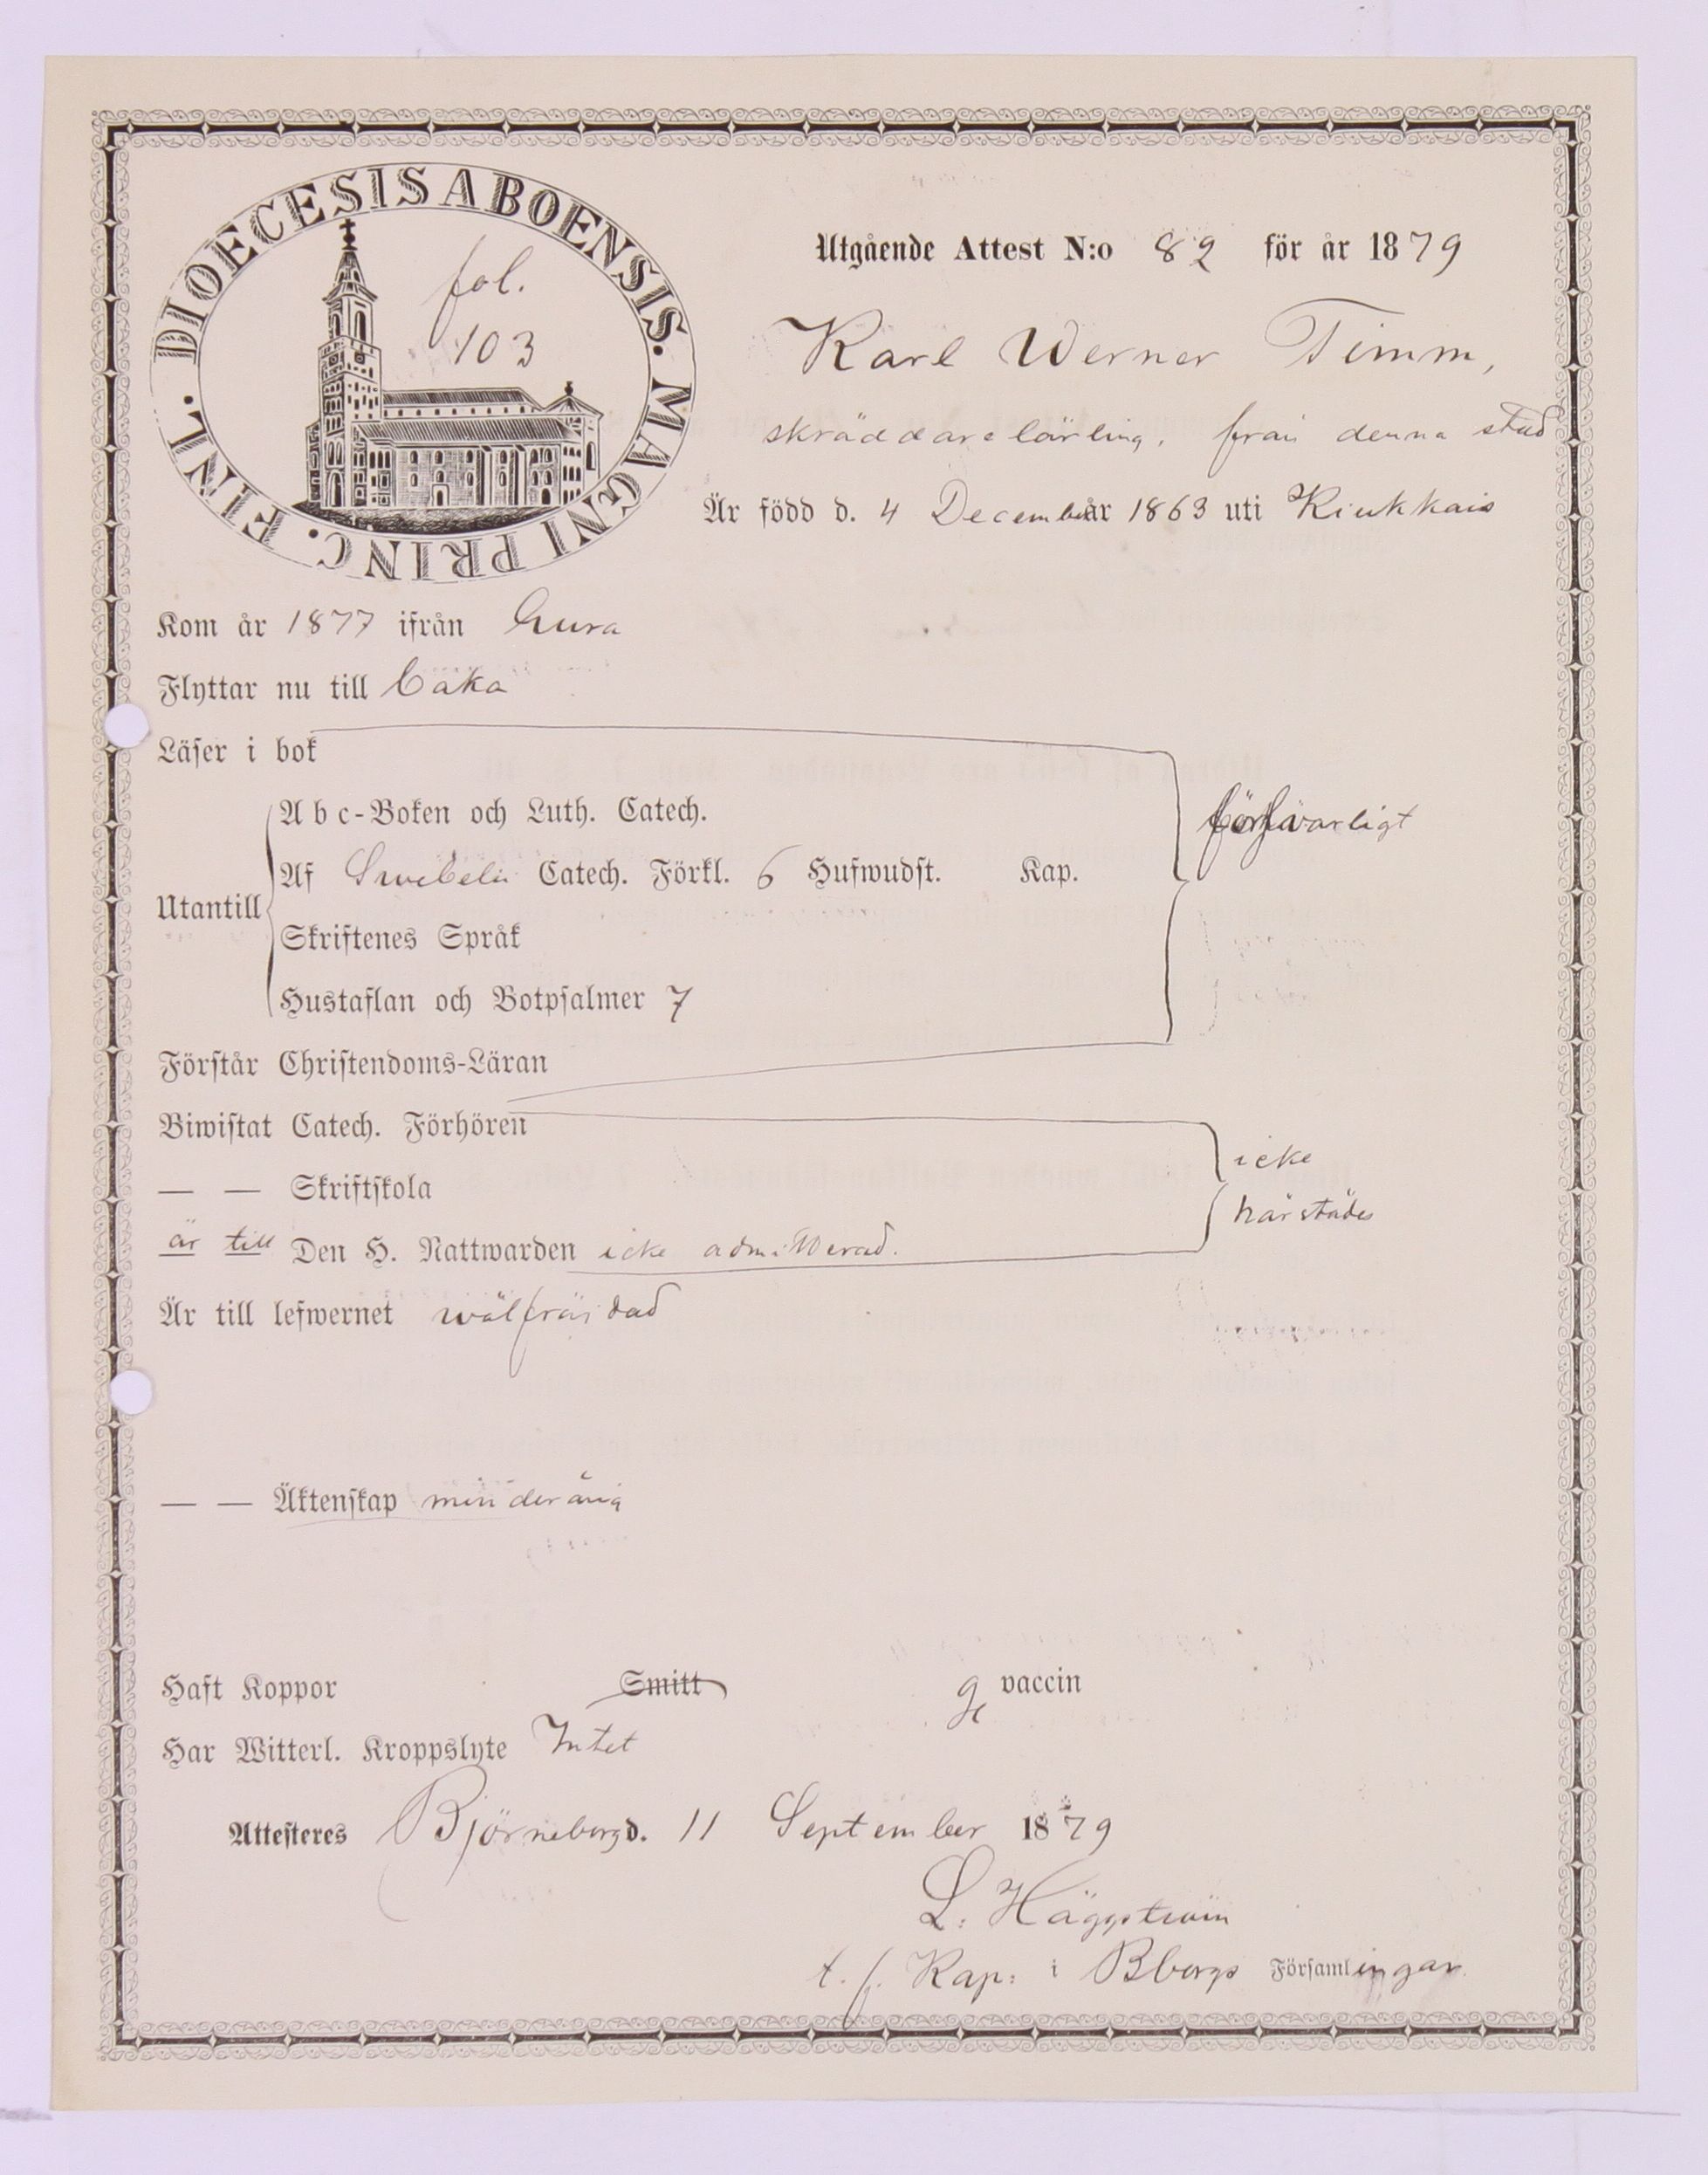 DIOECESIS ABOENSIS. MAGNI PRINC. FINL.
fol.
103
Utgående Attest N:o 82 för år 1879
Karl Werner Timm,
skräddarelärling, från denna stad
Är född d. 4 December år 1863 uti Kiukkais
Kom år 1877 ifrån Eura
Flyttar nu till
Läser i bok
Abc-Boken och Luth. Catech.
försvarligt
Af Swebelii Catech. Förkl. 6 Hufwudst. Kap.
Utantill
Skriftenes Språk
Hustaflan och Botpsalmer 7
Förstår Christendoms-Läran
Biwistat Catech. Förhören
icke
— — Skriftskola
härstädes
är till Den H. Nattwarden icke admitterad.
Är till lefwernet wälfräjdad
— — Äktenskap minderårig
Haft Koppor Smitt g vaccin
Har Witterl. Kroppslyte Intet
Attesteres Björneborg d. 11 September 1879
L. Häggström
t. f. Kap: i Bborgs Församlingar.